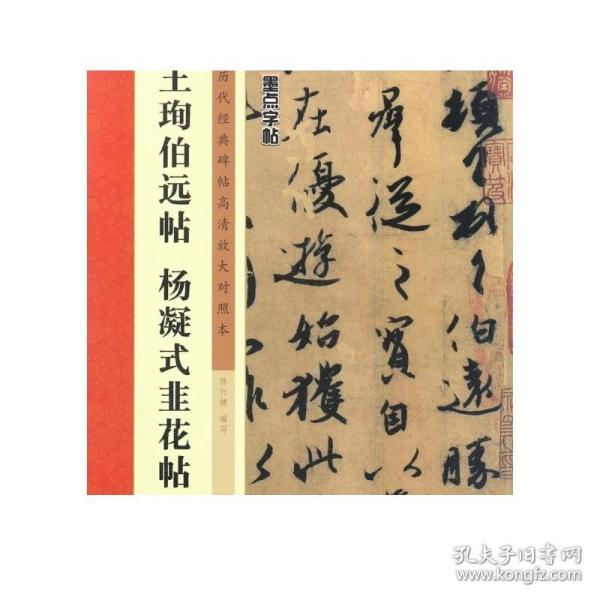 王珣伯远帖 杨凝式韭花帖
历代经典碑帖高清放大对照本
陈行健 编写
墨点字帖
頓首頓首伯遠勝
羣從之寳自以
在優遊始獲此
孔夫子旧书网
www.kongfz.com